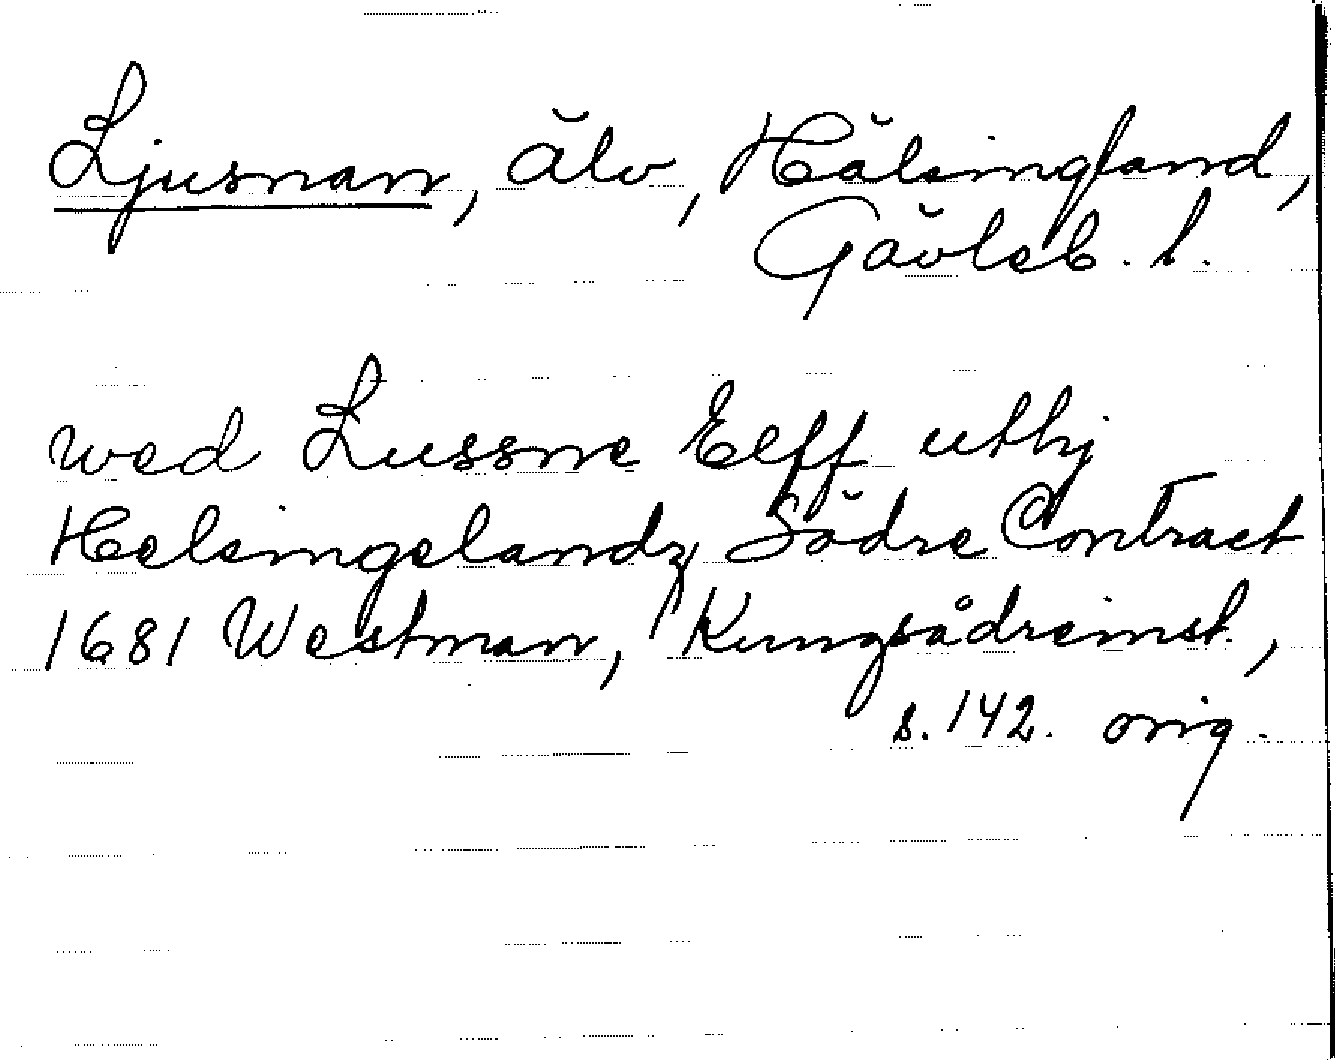 Ljusnan, älv, Hälsingland,
Gävleb. l.
wed Lussne Eelff uthj
Helsingelandz Södre Contract
1681 Westman, Kungsådreinst.,
s. 142. orig.